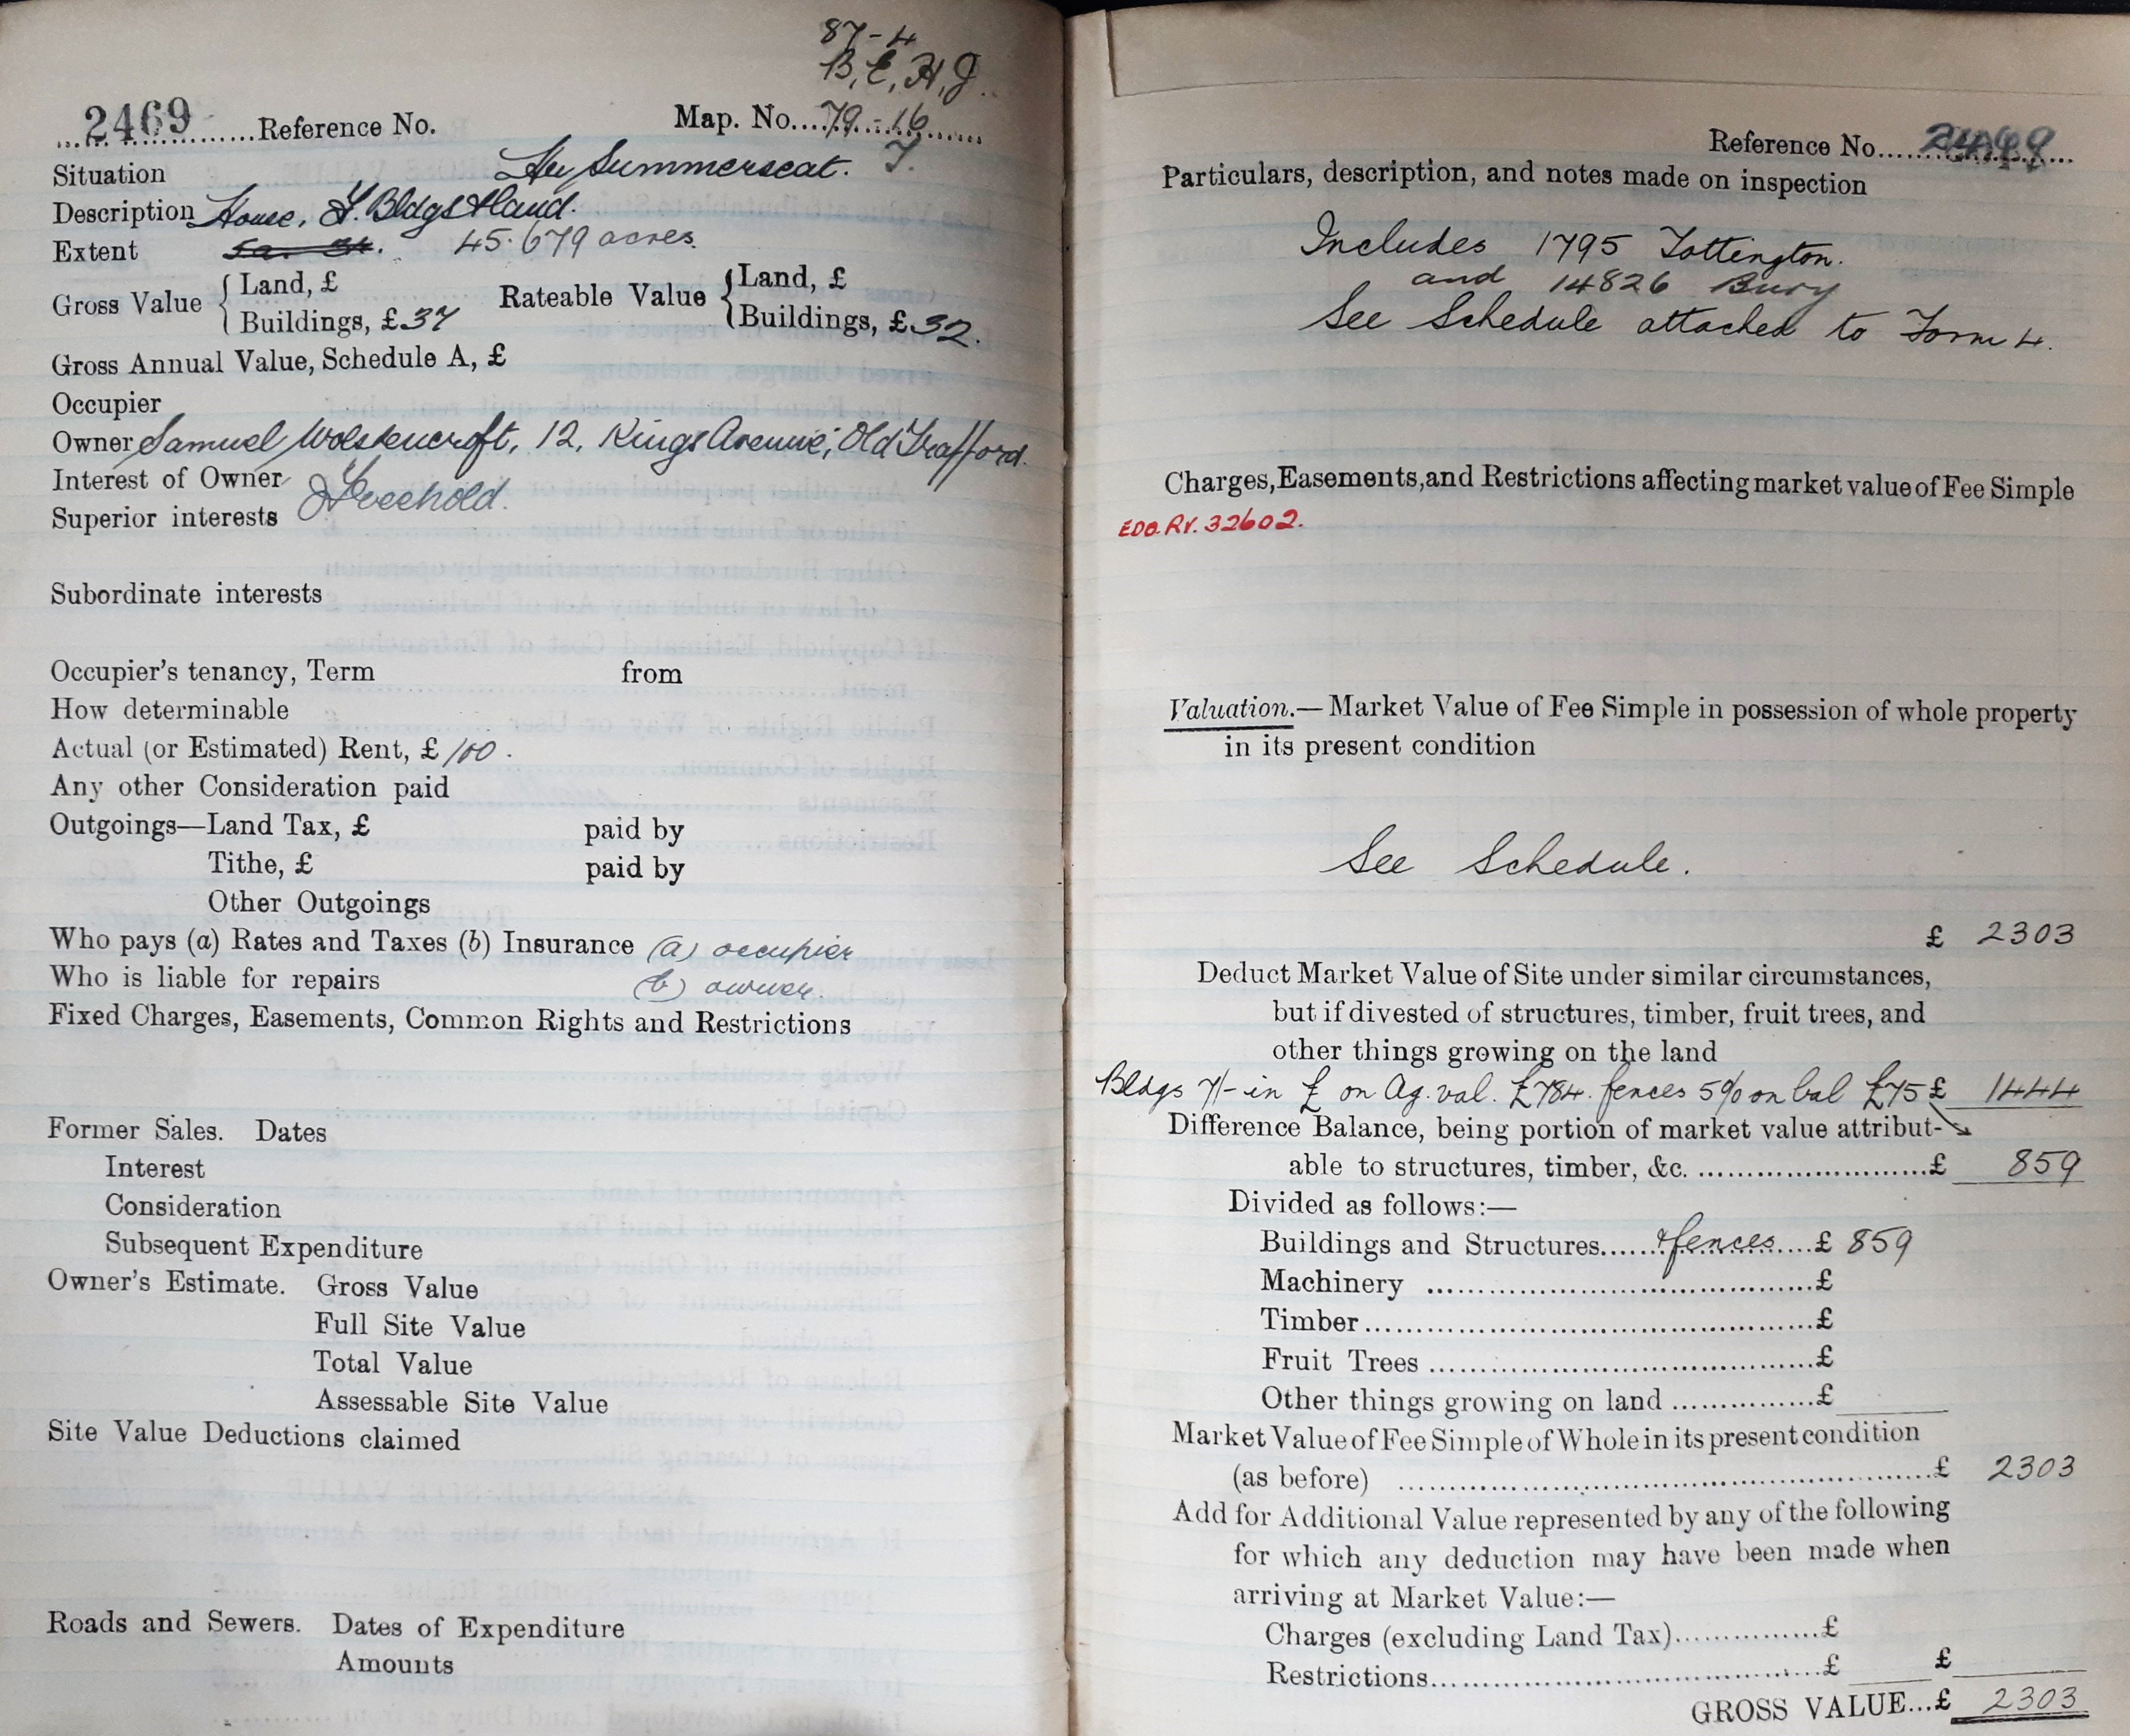 87-4
B, E, H, J.
2469 Reference No.
Map. No. 79-16
Situation Summerseat. F.
Description House, F. Bldgs & land.
Extent 45.679 acres.
Gross Value { Land, £
Buildings, £ 37
Rateable Value { Land, £
Buildings, £ 32.
Gross Annual Value, Schedule A, £
Occupier
Owner Samuel Wolstencroft, 12, Kings Avenue, Old Trafford.
Interest of Owner Freehold.
Superior interests
Subordinate interests
Occupier's tenancy, Term from
How determinable
Actual (or Estimated) Rent, £ 100.
Any other Consideration paid
Outgoings—Land Tax, £ paid by
Tithe, £ paid by
Other Outgoings
Who pays (a) Rates and Taxes (b) Insurance (a) occupier
Who is liable for repairs (b) owner.
Fixed Charges, Easements, Common Rights and Restrictions
Former Sales. Dates
Interest
Consideration
Subsequent Expenditure
Owner's Estimate. Gross Value
Full Site Value
Total Value
Assessable Site Value
Site Value Deductions claimed
Roads and Sewers. Dates of Expenditure
Amounts
Reference No. 2469
Particulars, description, and notes made on inspection
Includes 1795 Tottington.
and 14826 Bury
See Schedule attached to Form 4.
Charges, Easements, and Restrictions affecting market value of Fee Simple
EDO. RV. 32602.
Valuation.— Market Value of Fee Simple in possession of whole property
in its present condition
See Schedule.
£ 2303
Deduct Market Value of Site under similar circumstances,
but if divested of structures, timber, fruit trees, and
other things growing on the land
Bldgs 7/- in £ on Ag. val. £784. fences 5% on bal £75 £ 1444
Difference Balance, being portion of market value attribut-
able to structures, timber, &c. £ 859
Divided as follows:—
Buildings and Structures & fences £ 859
Machinery £
Timber £
Fruit Trees £
Other things growing on land £
Market Value of Fee Simple of Whole in its present condition
(as before) £ 2303
Add for Additional Value represented by any of the following
for which any deduction may have been made when
arriving at Market Value:—
Charges (excluding Land Tax) £
Restrictions £ £
GROSS VALUE... £ 2303